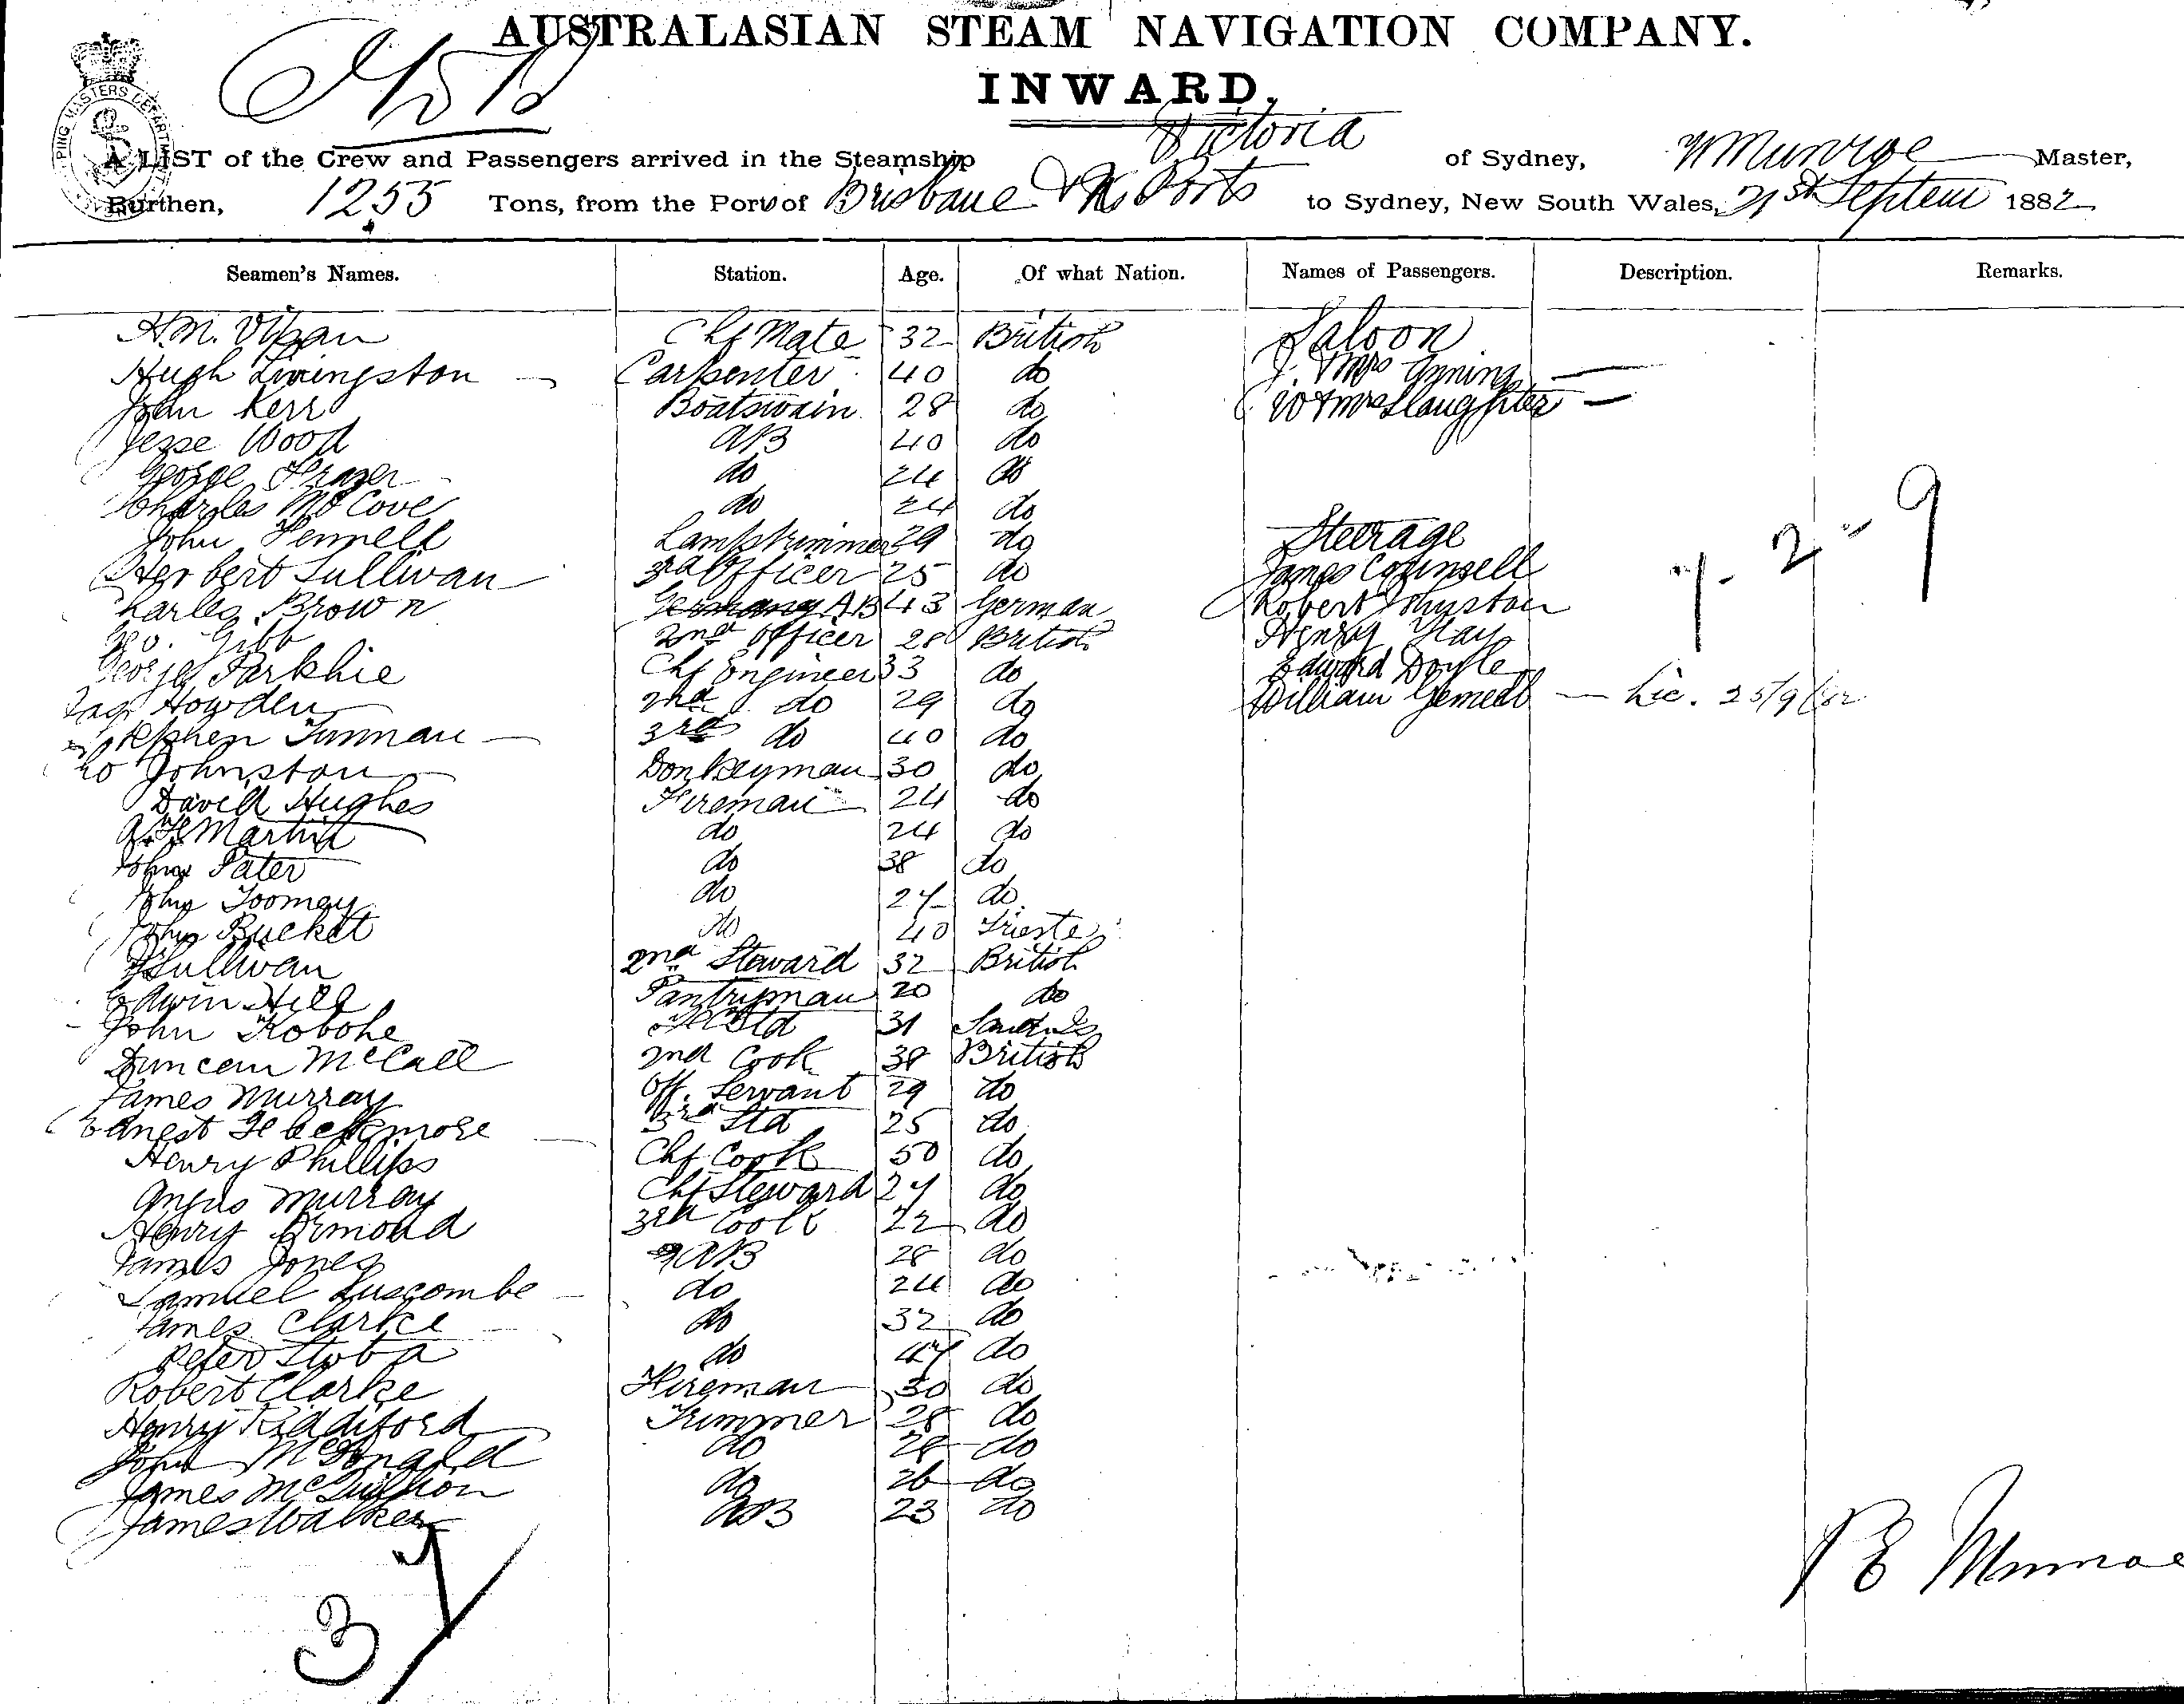 AUSTRALASIAN STEAM NAVIGATION COMPANY.
INWARD.
A LIST of the Crew and Passengers arrived in the Steamship Victoria of Sydney, Munroe Master,
Burthen, 1255 Tons, from the Port of Brisbane & Ports to Sydney, New South Wales, 21st Septem 1882
Seamen's Names. Station. Age. Of what Nation. Names of Passengers. Description. Remarks.
H.M. Vipan Chf Mate 32 British Saloon
Hugh Livingston Carpenter 40 do J. & Mrs
John Kerr Boatswain 28 do W & Mrs Slaughter
Jesse Wood AB 40 do
George Frazer do 24 do
Charles McCove do 24 do
John Fennell Lamptrimmer 29 do Steerage
Herbert Sullivan 3rd Officer 25 do James Counsell
Charles Brown AB 43 German Robert Johnston
Geo. Gibb 2nd Officer 28 British Henry Hay
George Parkhie Chf Engineer 33 do Edward Doyle
Jas Howden 2nd do 29 do William Gemell
Stephen 3rd do 40 do
Johnston Donkeyman 30 do
David Hughes Fireman 24 do
Martin do 24 do
John Pater do 38 do
John Toomey do 27 do
John Bucket do 40 Trieste
Sullivan 2nd Steward 32 British
Edwin Hill Pantryman 20 do
John Kobohe 31
Duncan McCall 2nd Cook 38 British
James Murray Off. Servant 29 do
Ernest 3rd Std 25 do
Henry Phillips Chf Cook 50 do
Angus Murray Chf Steward 27 do
Henry Ormond 3rd Cook 22 do
James Jones AB 28 do
Samuel Luscombe do 24 do
James Clarke do 32 do
Peter Stoba do 47 do
Robert Clarke Fireman 30 do
Henry Riddiford Trimmer 28 do
John McDonald do 28 do
James McQuillion do 26 do
James Walker AB 23 do
37
7 - 2 = 9
Munroe